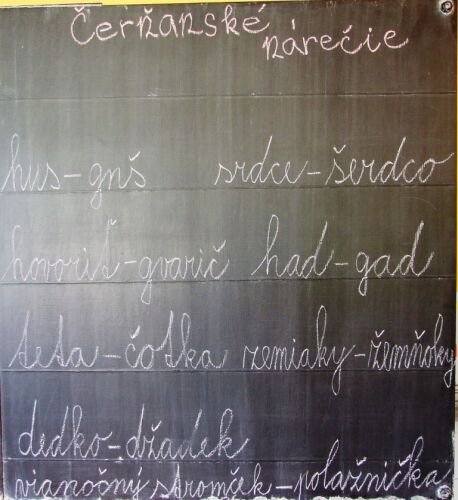 Čerňanské
nárečie
hus-gnš srdce-šerdco
hovoriť-gvarič had-gad
teta-čotka zemiaky-žemňoky
dedko-džadek
vianočný stromček-polažnička